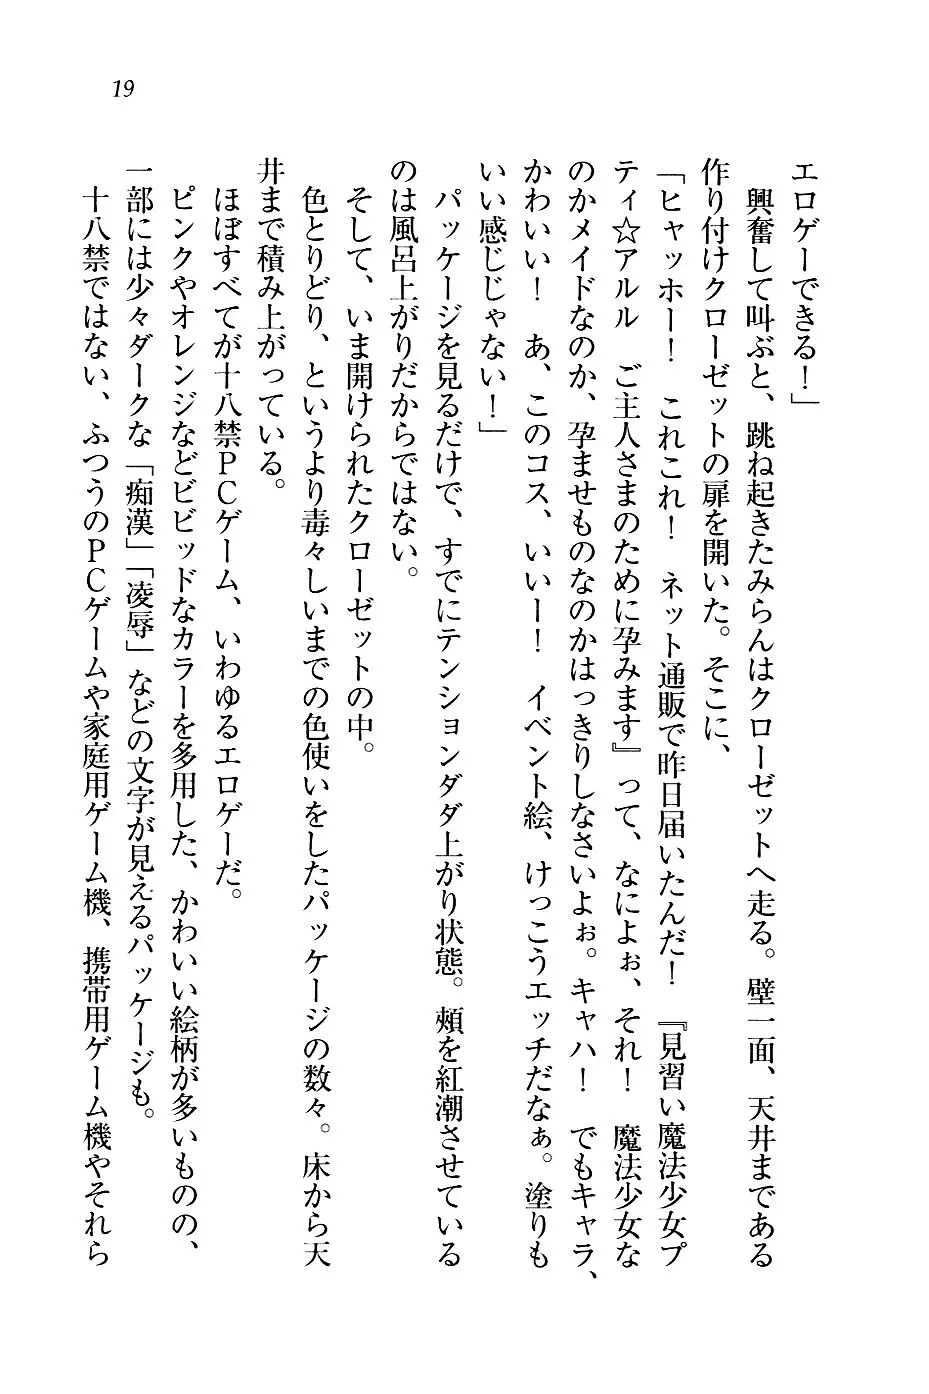 19
エロゲーできる！」
　興奮して叫ぶと、跳ね起きたみらんはクローゼットへ走る。壁一面、天井まである
作り付けクローゼットの扉を開いた。そこに、
「ヒャッホー！　これこれ！　ネット通販で昨日届いたんだ！　『見習い魔法少女プ
ティ☆アルル　ご主人さまのために孕みます』って、なによぉ、それ！　魔法少女な
のかメイドなのか、孕ませものなのかはっきりしなさいよぉ。キャハ！　でもキャラ、
かわいい！　あ、このコス、いいー！　イベント絵、けっこうエッチだなぁ。塗りも
いい感じじゃない！」
　パッケージを見るだけで、すでにテンションダダ上がり状態。頬を紅潮させている
のは風呂上がりだからではない。
　そして、いま開けられたクローゼットの中。
　色とりどり、というより毒々しいまでの色使いをしたパッケージの数々。床から天
井まで積み上がっている。
　ほぼすべてが十八禁ＰＣゲーム、いわゆるエロゲーだ。
　ピンクやオレンジなどビビッドなカラーを多用した、かわいい絵柄が多いものの、
一部には少々ダークな「痴漢」「凌辱」などの文字が見えるパッケージも。
　十八禁ではない、ふつうのＰＣゲームや家庭用ゲーム機、携帯用ゲーム機やそれら